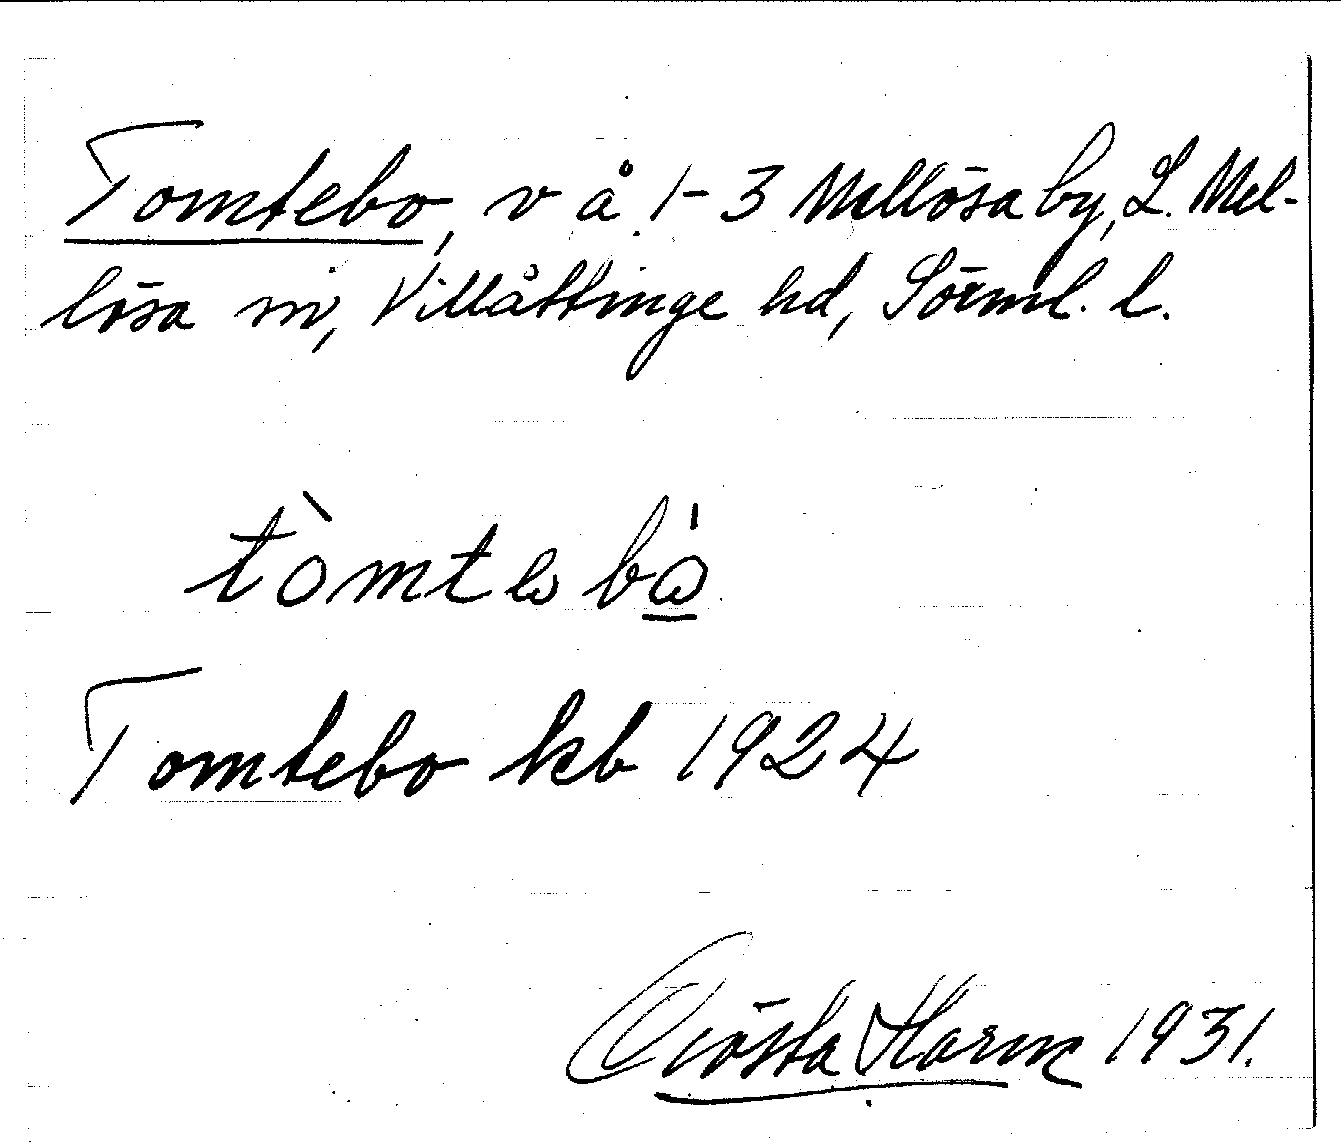 Tomtebo, v å 1-3 Mellösa by, L. Mel-
lösa sn, Villåttinge hd, Sörml. l.
tòmtebo
Tomtebo kb 1924
Gösta Harm 1931.